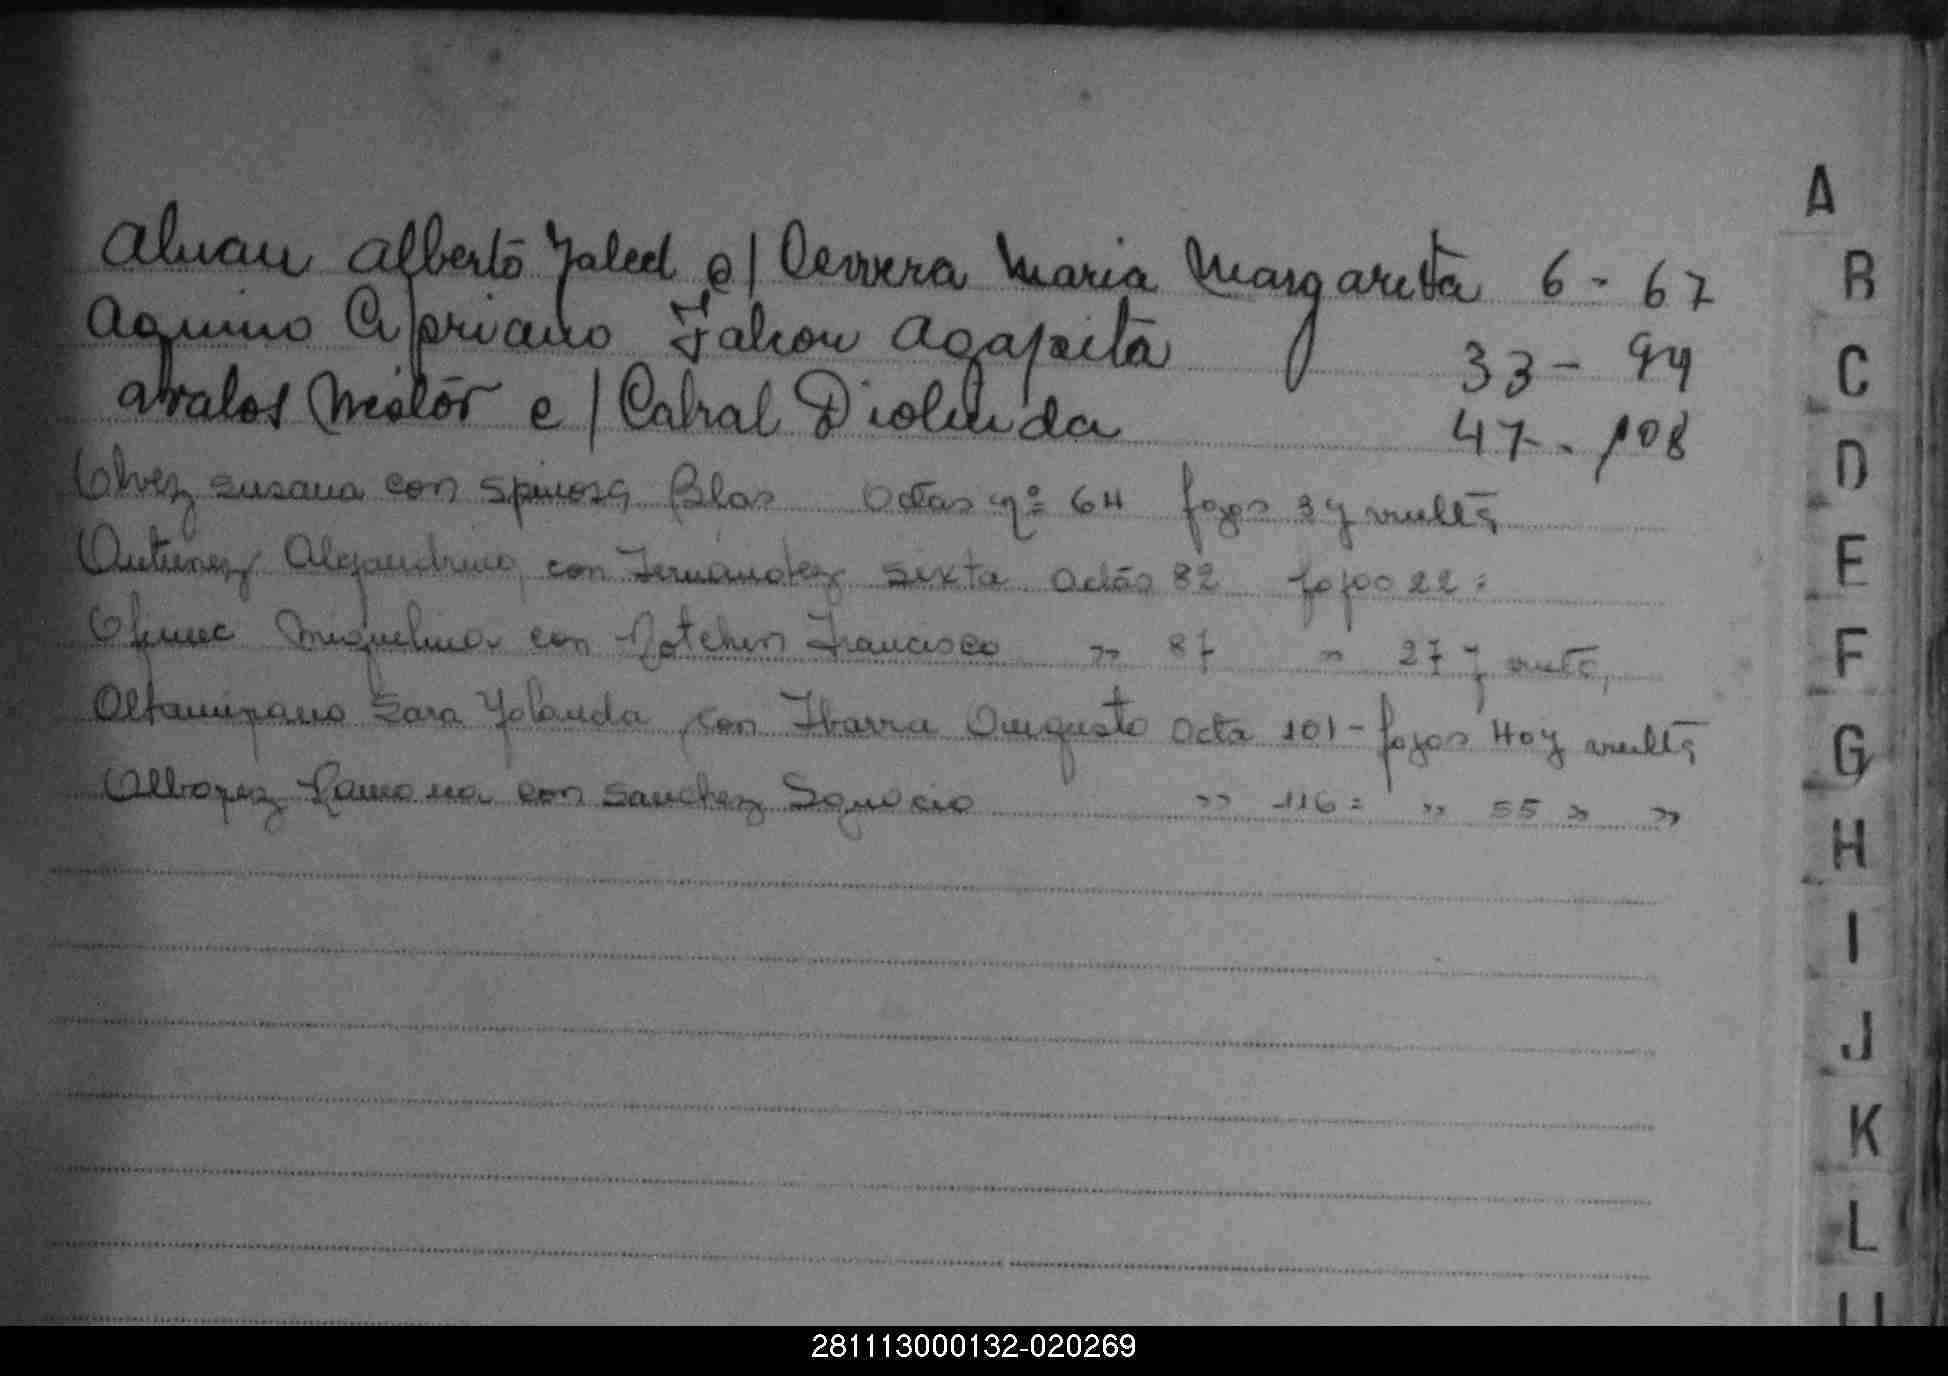 Aluau Alberto Jaled c/ Cerrera Maria Margarita 6 - 67
Aquino Cipriano Falcon Agapita 33 - 94
Avalos Melitor c/ Cabral Diolinda 47 - 108
Alvez Susana con Spinosa Blas Actas nº 64 fojas 3 y vuelta
Antunez Alejandrina con Fernandez Sixta Actas 82 fojas 22 =
Miguelina con Francisco " 87 " 27 y
Altamirano Sara Yolanda con Ibarra Augusto Acta 101 - fojas 40 y vuelta
Albarez Ramona con Sanchez Ignacio " 116 = " 55 " "
A
B
C
D
E
F
G
H
I
J
K
L
281113000132-020269